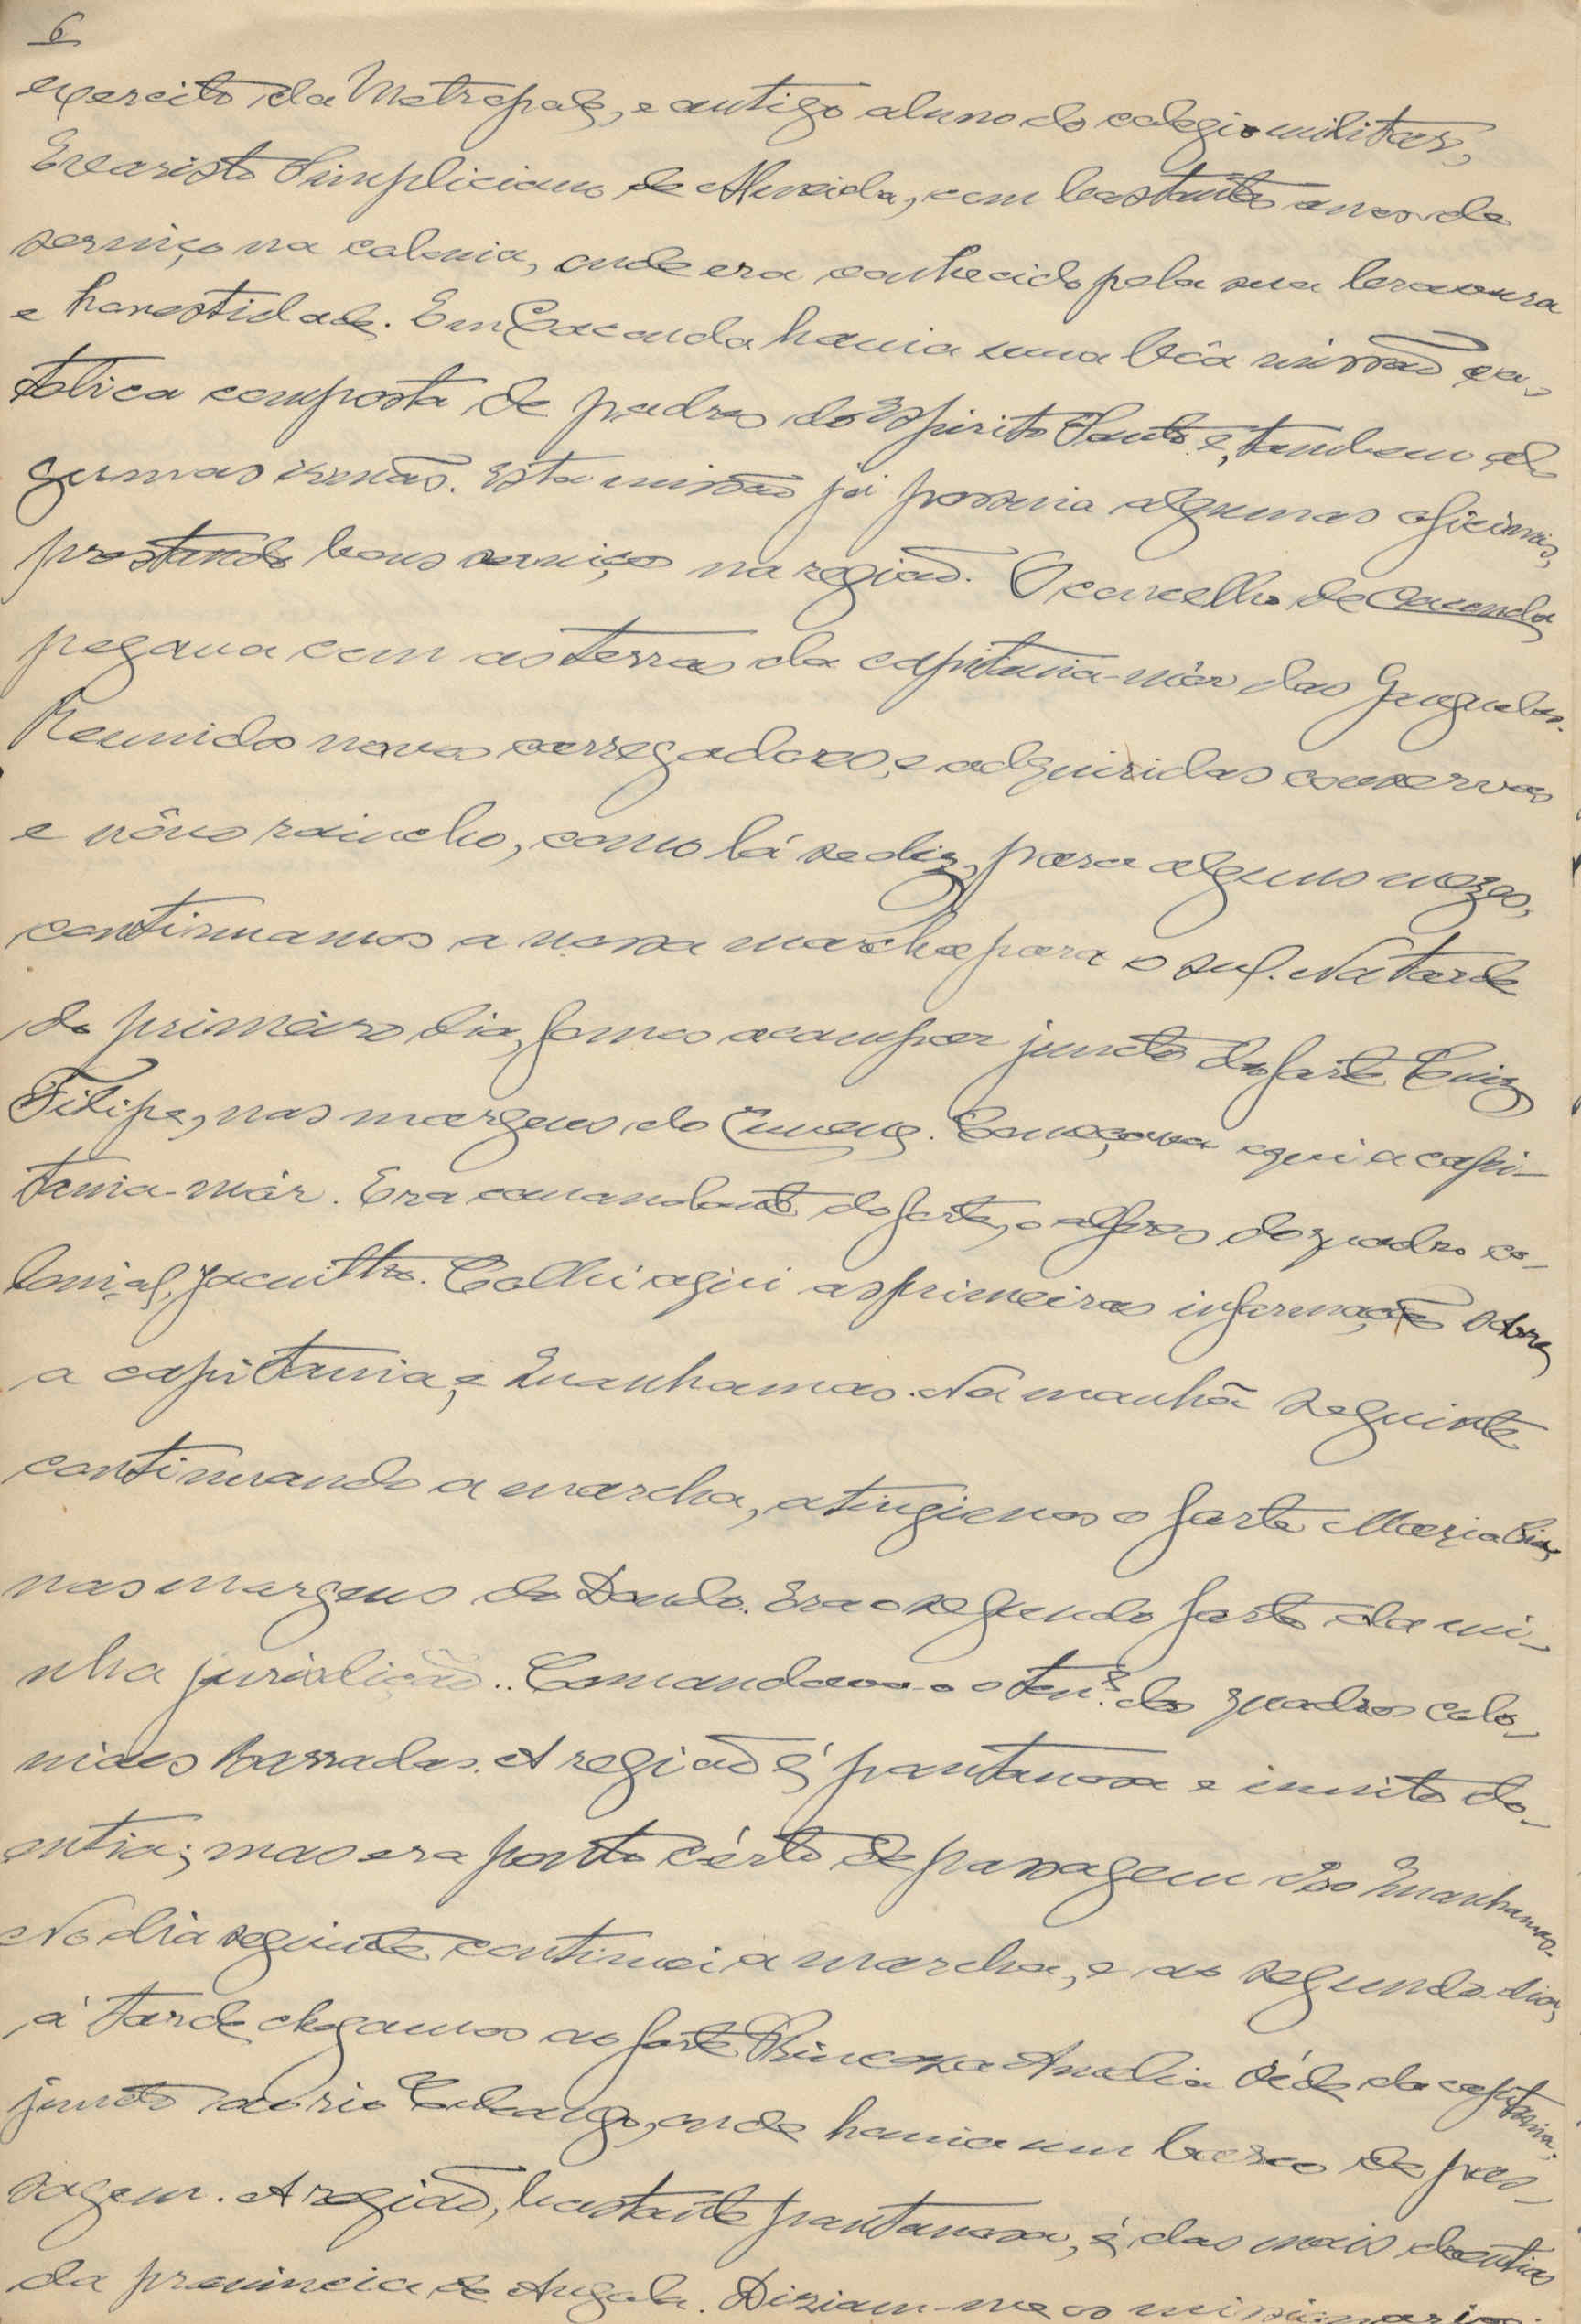 6
exercito da Metropole, e antigo aluno do colegio militar,
Evaristo Simpliciano de Almeida, com bastantes anos de
serviço na colonia, onde era conhecido pela sua bravura
e honestidade. Em Cacanda havia uma bôa missão ca-
tolica composta de padres do Espirito Santo e, tambem al-
gumas irmãs. Esta missão já possuia algumas oficinas,
prestando bons serviços na região. O concelho de Caconda
pegava com as terras da capitania-mór das Ganguelas.
Reunidos novos carregadores, e adquiridas conservas
e nôvo rancho, como lá se diz, para alguns mezes,
continuamos a nossa marcha para o sul. Na tarde
do primeiro dia, fomos acampar junto do forte Luiz
Filipe, nas margens do Cunene. Começava aqui a capi-
tania-mór. Era comandante do forte, o alferes do quadro co-
lonial, . Colhi aqui as primeiras informações sobre
a capitania, e Quanhamas. Na manhã seguinte
continuando a marcha, atingimos o forte Maria Pia,
nas margens do Dondo. Era o segundo forte da mi-
nha jurisdição.. Comandava-o o tenᵉ. dos quadros colo-
niaes Barradas. A região é pantanosa e muito do-
entia; mas era ponto cérto de passagem dos Quanhamas.
No dia seguinte continuei a marcha, e ao segundo dia,
á tarde chegamos ao forte Princeza Amelia séde da capitania,
junto ao rio Cubango, onde havia um barco de pas-
sagem. A região, bastante pantanosa, é das mais doentias
da provincia de Angola. Diziam-me os missionarios